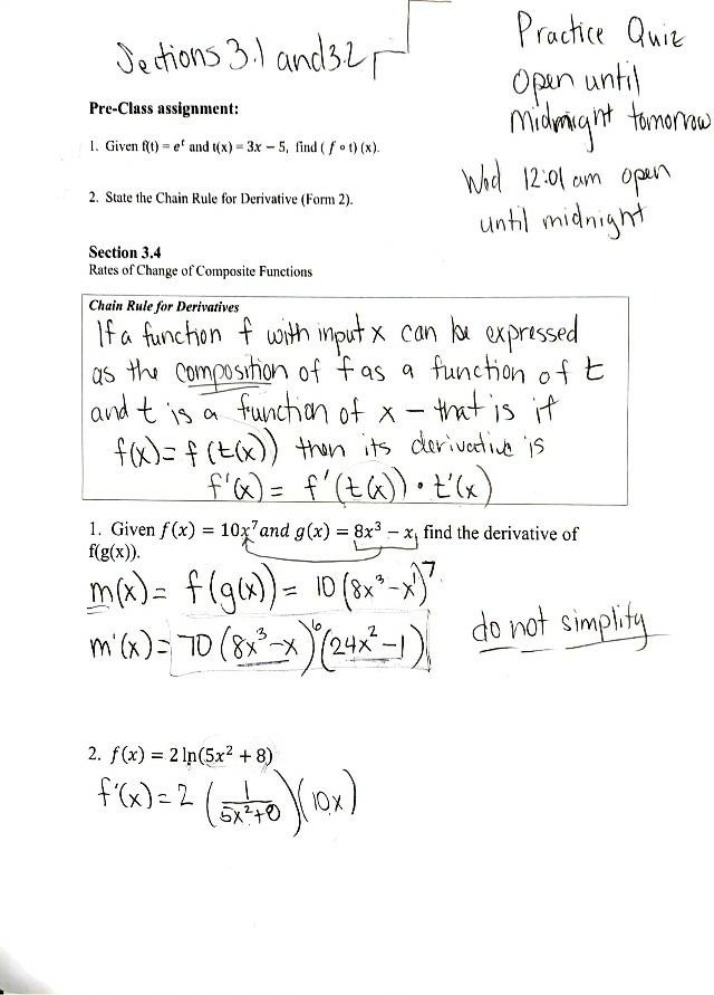 Sections 3.1 and 3.2
Practice Quiz
Open until
Midnight tomorrow
Wed 12:01 am open
until midnight
Pre-Class assignment:
1. Given f(t) = eᵗ and t(x) = 3x – 5, find ( f ∘ t) (x).
2. State the Chain Rule for Derivative (Form 2).
Section 3.4
Rates of Change of Composite Functions
Chain Rule for Derivatives
If a function f with input x can be expressed
as the composition of f as a function of t
and t is a function of x – that is if
f(x) = f(t(x)) then its derivative is
f'(x) = f'(t(x)) · t'(x)
1. Given f(x) = 10x⁷ and g(x) = 8x³ − x, find the derivative of
f(g(x)).
m(x) = f(g(x)) = 10(8x³-x¹)⁷
m'(x) = 70(8x³-x)⁶(24x²-1)
do not simplify
2. f(x) = 2 ln(5x² + 8)
f'(x) = 2 (1/(5x²+8))(10x)